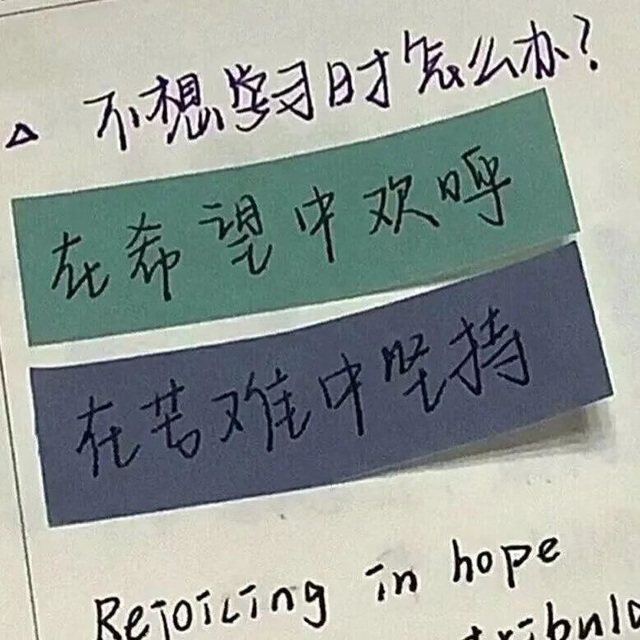 △ 不想学习时怎么办？
在希望中欢呼
在苦难中坚持
Rejoicing in hope